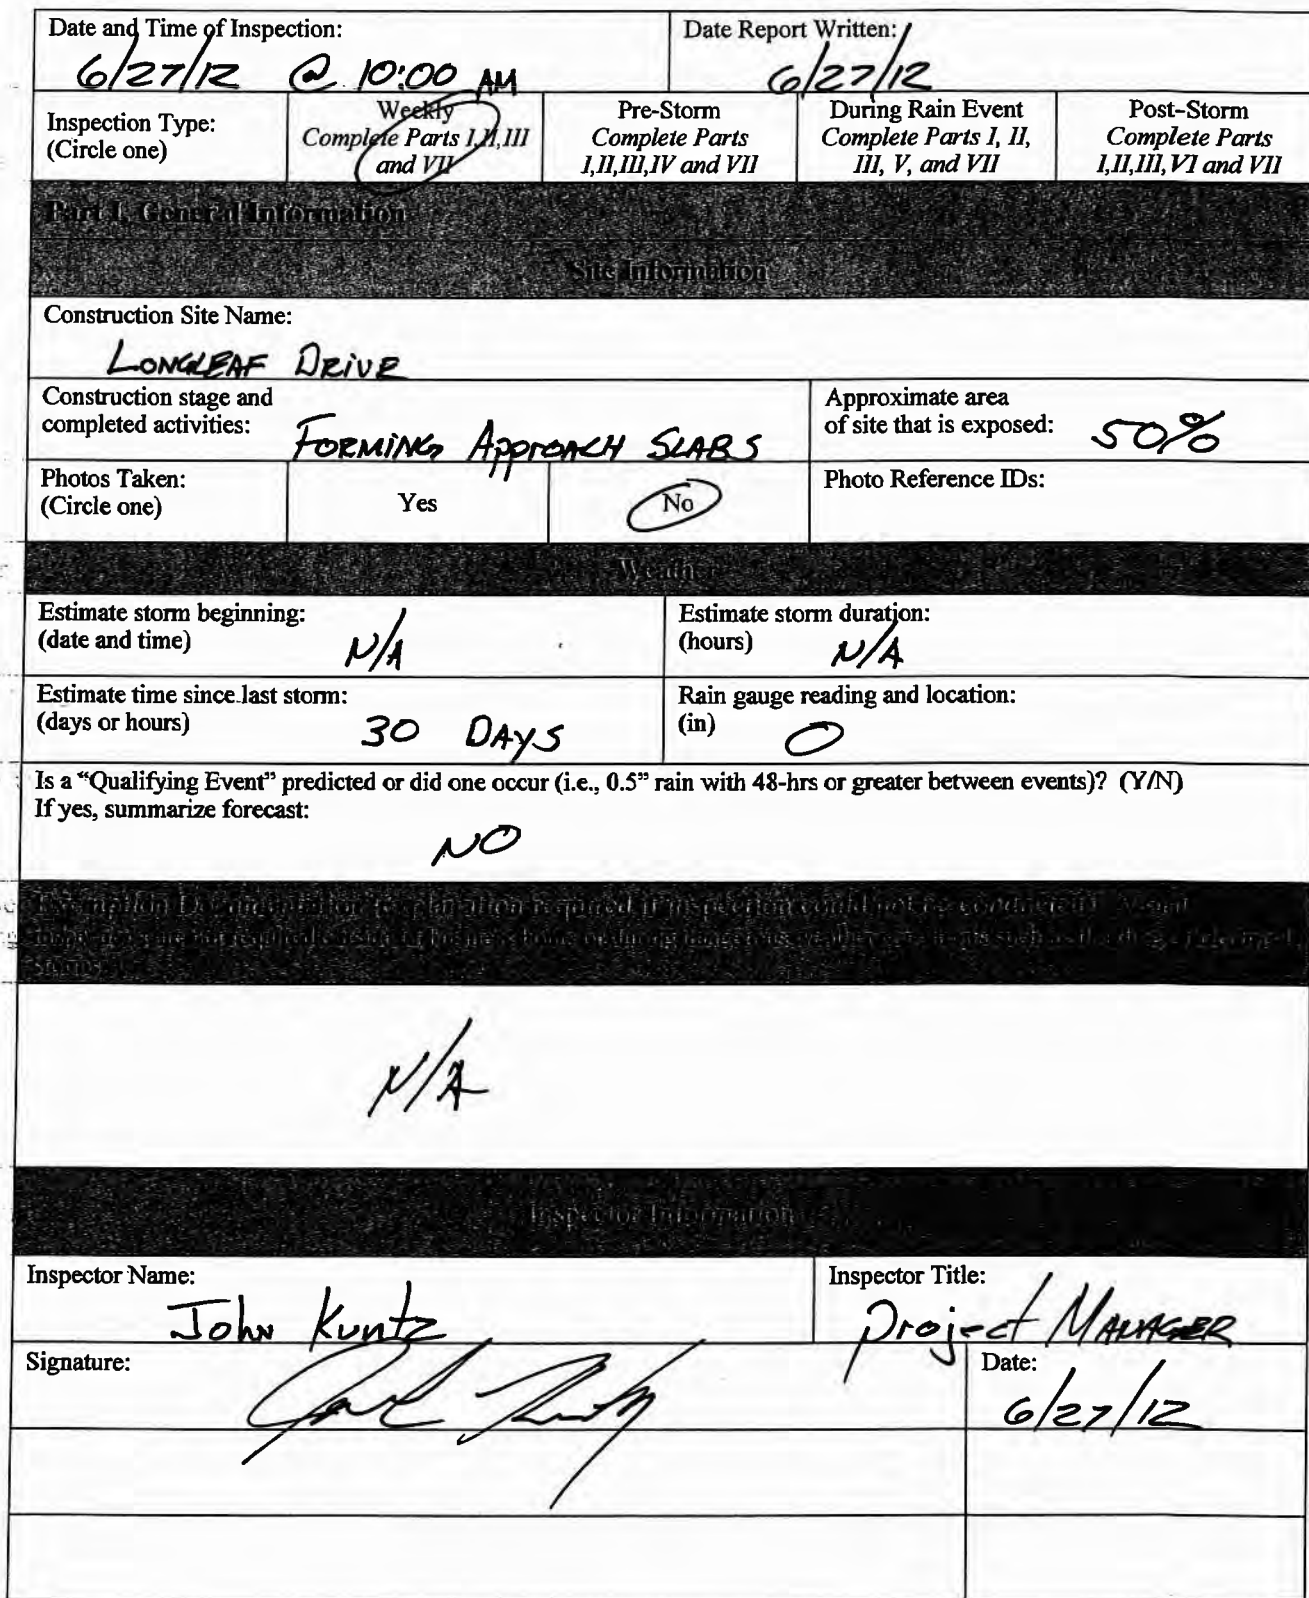 Date and Time of Inspection:
6/27/12 @ 10:00 AM
Date Report Written:
6/27/12
Inspection Type:
(Circle one)
Weekly
Complete Parts I,II,III
and VII
Pre-Storm
Complete Parts
I,II,III,IV and VII
During Rain Event
Complete Parts I, II,
III, V, and VII
Post-Storm
Complete Parts
I,II,III,VI and VII
Part I. General Information
Site Information
Construction Site Name:
LONGLEAF DRIVE
Construction stage and
completed activities:
FORMING APPROACH SLABS
Approximate area
of site that is exposed:
50%
Photos Taken:
(Circle one)
Yes
No
Photo Reference IDs:
Weather
Estimate storm beginning:
(date and time)
N/A
Estimate storm duration:
(hours)
N/A
Estimate time since last storm:
(days or hours)
30 DAYS
Rain gauge reading and location:
(in)
0
Is a “Qualifying Event” predicted or did one occur (i.e., 0.5” rain with 48-hrs or greater between events)? (Y/N)
If yes, summarize forecast:
NO
Exemption Documentation (explanation required if inspection could not be conducted). Visual
storms
N/A
Inspector Information
Inspector Name:
John Kuntz
Inspector Title:
Project MANAGER
Signature:
Date:
6/27/12